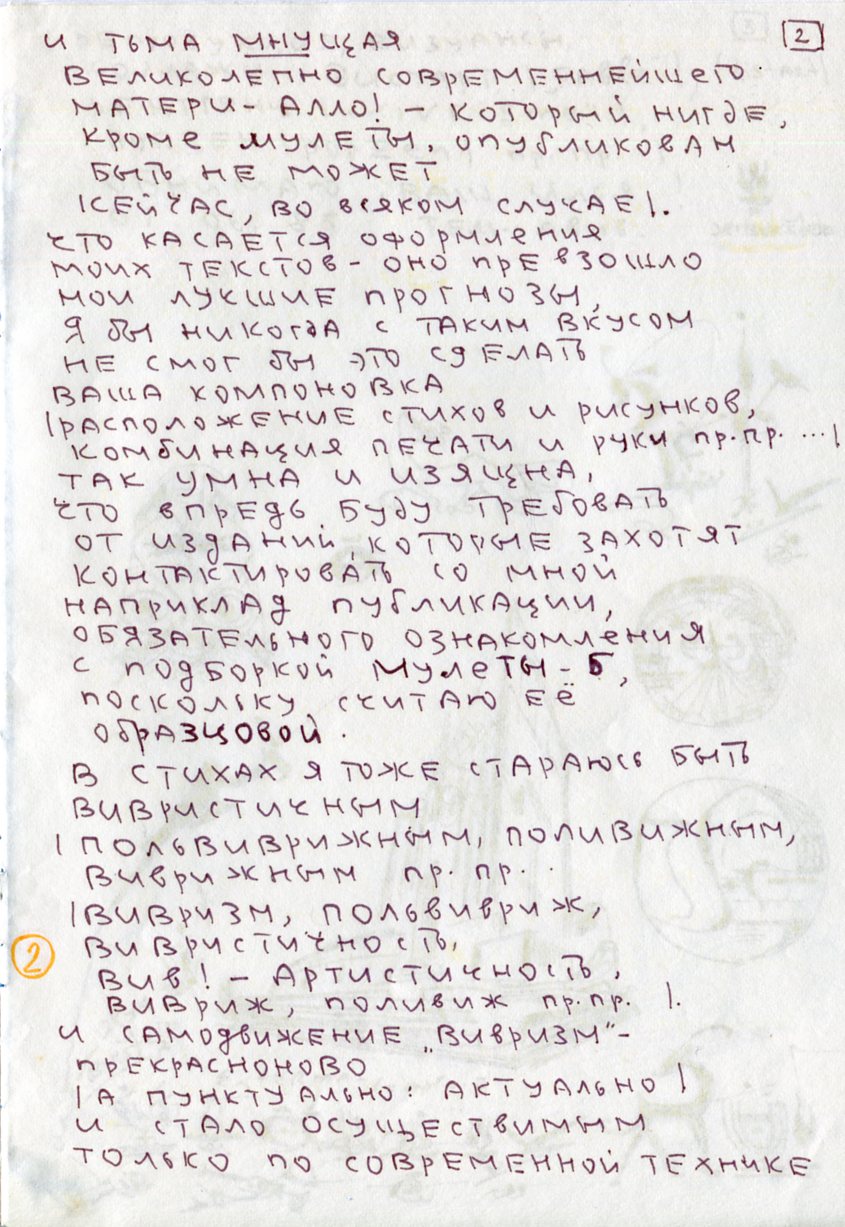 2
И ТЬМА МНУЩАЯ
ВЕЛИКОЛЕПНО СОВРЕМЕННЕЙШЕГО
МАТЕРИ – АЛЛО! – КОТОРЫЙ НИГДЕ,
КРОМЕ МУЛЕТЫ, ОПУБЛИКОВАН
БЫТЬ НЕ МОЖЕТ
|СЕЙЧАС, ВО ВСЯКОМ СЛУЧАЕ|.
ЧТО КАСАЕТСЯ ОФОРМЛЕНИЯ
МОИХ ТЕКСТОВ – ОНО ПРЕВЗОШЛО
МОИ ЛУКШИЕ ПРОГНОЗЫ,
Я БЫ НИКОГДА С ТАКИМ ВКУСОМ
НЕ СМОГ БЫ ЭТО СДЕЛАТЬ
ВАША КОМПОНОВКА
|РАСПОЛОЖЕНИЕ СТИХОВ И РИСУНКОВ,
КОМБИНАЦИЯ ПЕЧАТИ И РУКИ ПР.ПР. ...|
ТАК УМНА И ИЗЯЩНА,
ЧТО ВПРЕДЬ БУДУ ТРЕБОВАТЬ
ОТ ИЗДАНИЙ, КОТОРЫЕ ЗАХОТЯТ
КОНТАКТИРОВАТЬ СО МНОЙ
НАПРИКЛАД ПУБЛИКАЦИИ,
ОБЯЗАТЕЛЬНОГО ОЗНАКОМЛЕНИЯ
С ПОДБОРКОЙ МУЛЕТЫ – Б,
ПОСКОЛЬКУ СЧИТАЮ ЕЁ
ОБРАЗЦОВОЙ.
В СТИХАХ Я ТОЖЕ СТАРАЮСЬ БЫТЬ
ВИВРИСТИЧНЫМ
|ПОЛЬВИВРИЖНЫМ, ПОЛИВИЖНЫМ,
ВИВРИЖНЫМ ПР. ПР. .
|ВИВРИЗМ, ПОЛЬВИВРИЖ,
2 ВИВРИСТИЧНОСТЬ,
ВИВ! – АРТИСТИЧНОСТЬ,
ВИВРИЖ, ПОЛИВИЖ ПР.ПР. |.
И САМОДВИЖЕНИЕ „ВИВРИЗМ" –
ПРЕКРАСНОНОВО
|А ПУНКТУАЛЬНО: АКТУАЛЬНО|
И СТАЛО ОСУЩЕСТВИМЫМ
ТОЛЬКО ПО СОВРЕМЕННОЙ ТЕХНИКЕ